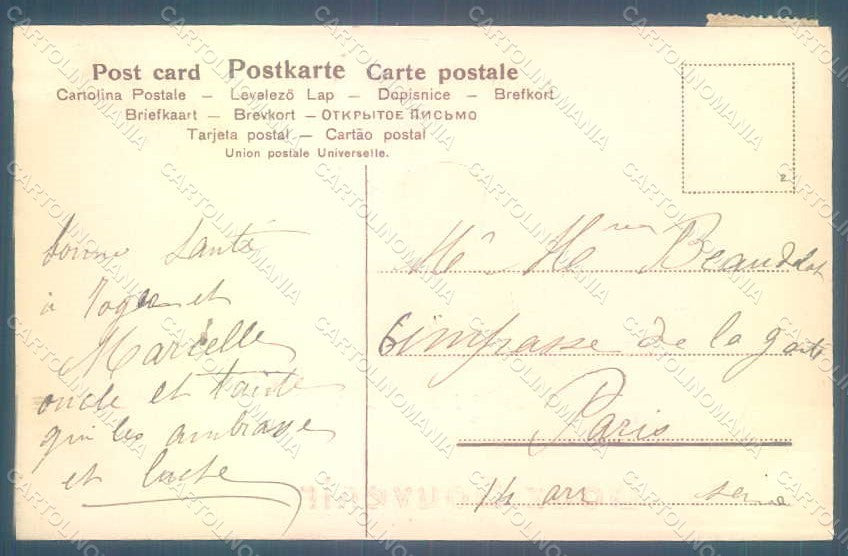 Post card Postkarte Carte postale
Cartolina Postale — Levelező Lap — Dopisnice — Brefkort
Briefkaart — Brevkort — ОТКРЫТОЕ ПИСЬМО
Tarjeta postal — Cartão postal
Union postale Universelle.
2
bonne santé
à et
Marcelle
oncle et tante
qui les
et
Beaudelot
6 impasse de la gaité
Paris
14 arr seine
CARTOLINOMANIA